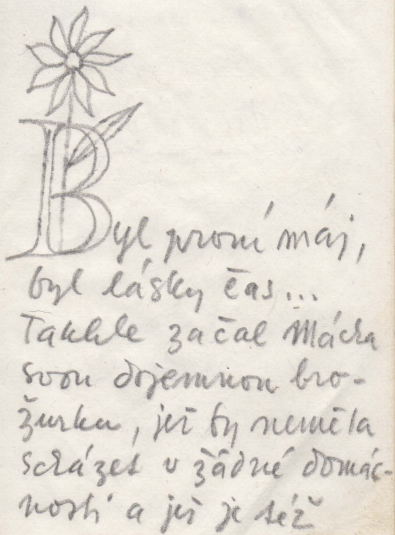 Byl první máj,
byl lásky čas...
Takhle začal Mácha
svou dojemnou bro-
žurku, jež by neměla
scházet v žádné domác-
nosti a jež je též